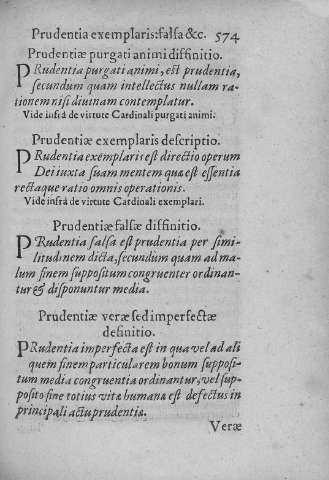 Prudentia exemplaris: falsa &c. 574
Prudentiæ purgati animi diffinitio.
PRudentia purgati animi, est prudentia,
secundum quam intellectus nullam ra-
tionem nisi diuinam contemplatur.
Vide infrà de virtute Cardinali purgati animi.
Prudentiæ exemplaris descriptio.
PRudentia exemplaris est directio operum
Dei iuxta suam mentem quæ est essentia
rectaque ratio omnis operationis.
Vide infrà de virtute Cardinali exemplari.
Prudentiæ falsæ diffinitio.
PRudentia falsa est prudentia per simi-
litudinem dicta, secundum quam ad ma-
lum finem suppositum congruenter ordinan-
tur & disponuntur media.
Prudentiæ veræ sed imperfectæ
definitio.
PRudentia imperfecta est in qua vel ad ali
quem finem particularem bonum supposi-
tum media congruentia ordinantur, vel sup-
posito fine totius vitæ humanæ est defectus in
principali actu prudentiæ.
Veræ